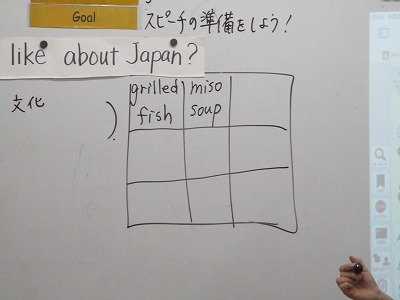 Goal
スピーチの準備をしよう!
like about Japan?
文化
)
grilled fish
miso soup